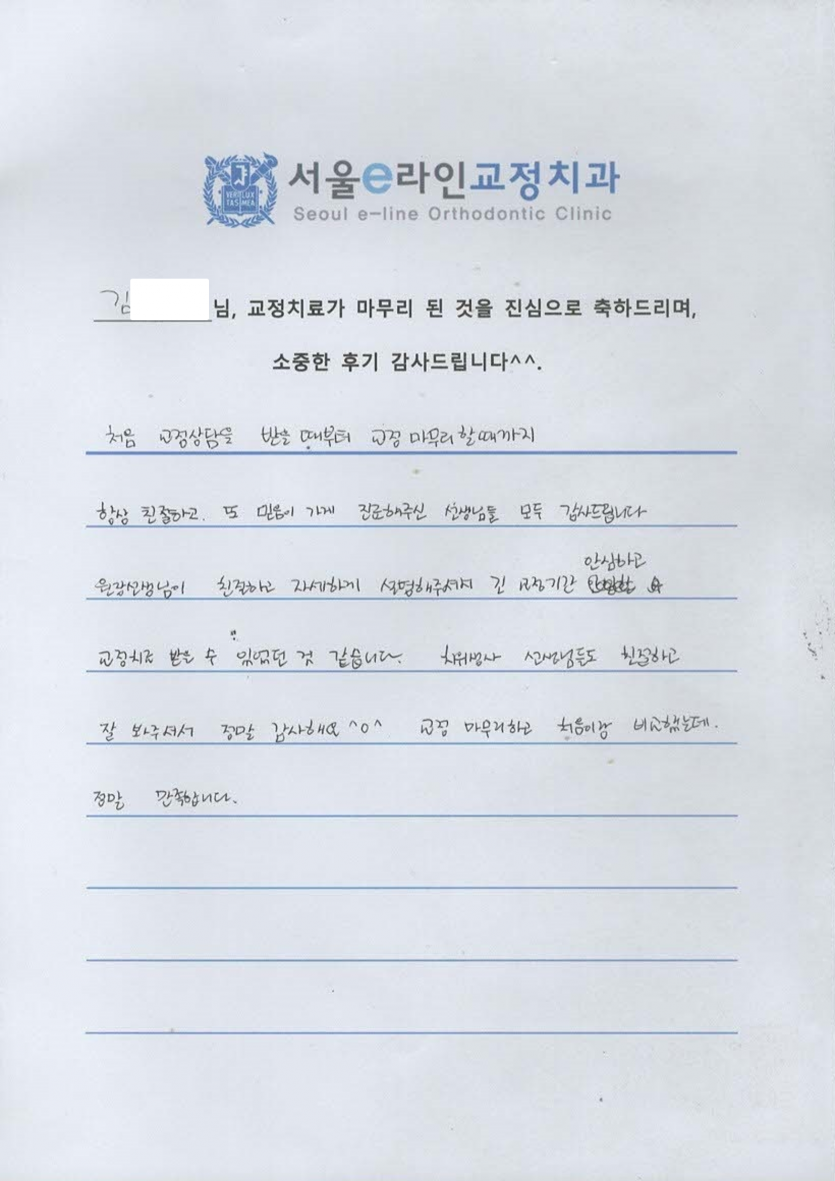 서울e라인교정치과
Seoul e-line Orthodontic Clinic
VERI LUX
TAS MEA
김 님, 교정치료가 마무리 된 것을 진심으로 축하드리며,
소중한 후기 감사드립니다^^.
처음 교정상담을 받을 때부터 교정 마무리 할 때까지
항상 친절하고. 또 믿음이 가게 진료해주신 선생님들 모두 감사드립니다
안심하고
원장선생님이 친절하고 자세하게 설명해주셔서 긴 교정기간
교정치료 받을 수 있었던 것 같습니다. 치위생사 선생님들도 친절하고
잘 봐주셔서 정말 감사해요 ^o^ 교정 마무리하고 처음이랑 비교했는데.
정말 만족합니다.